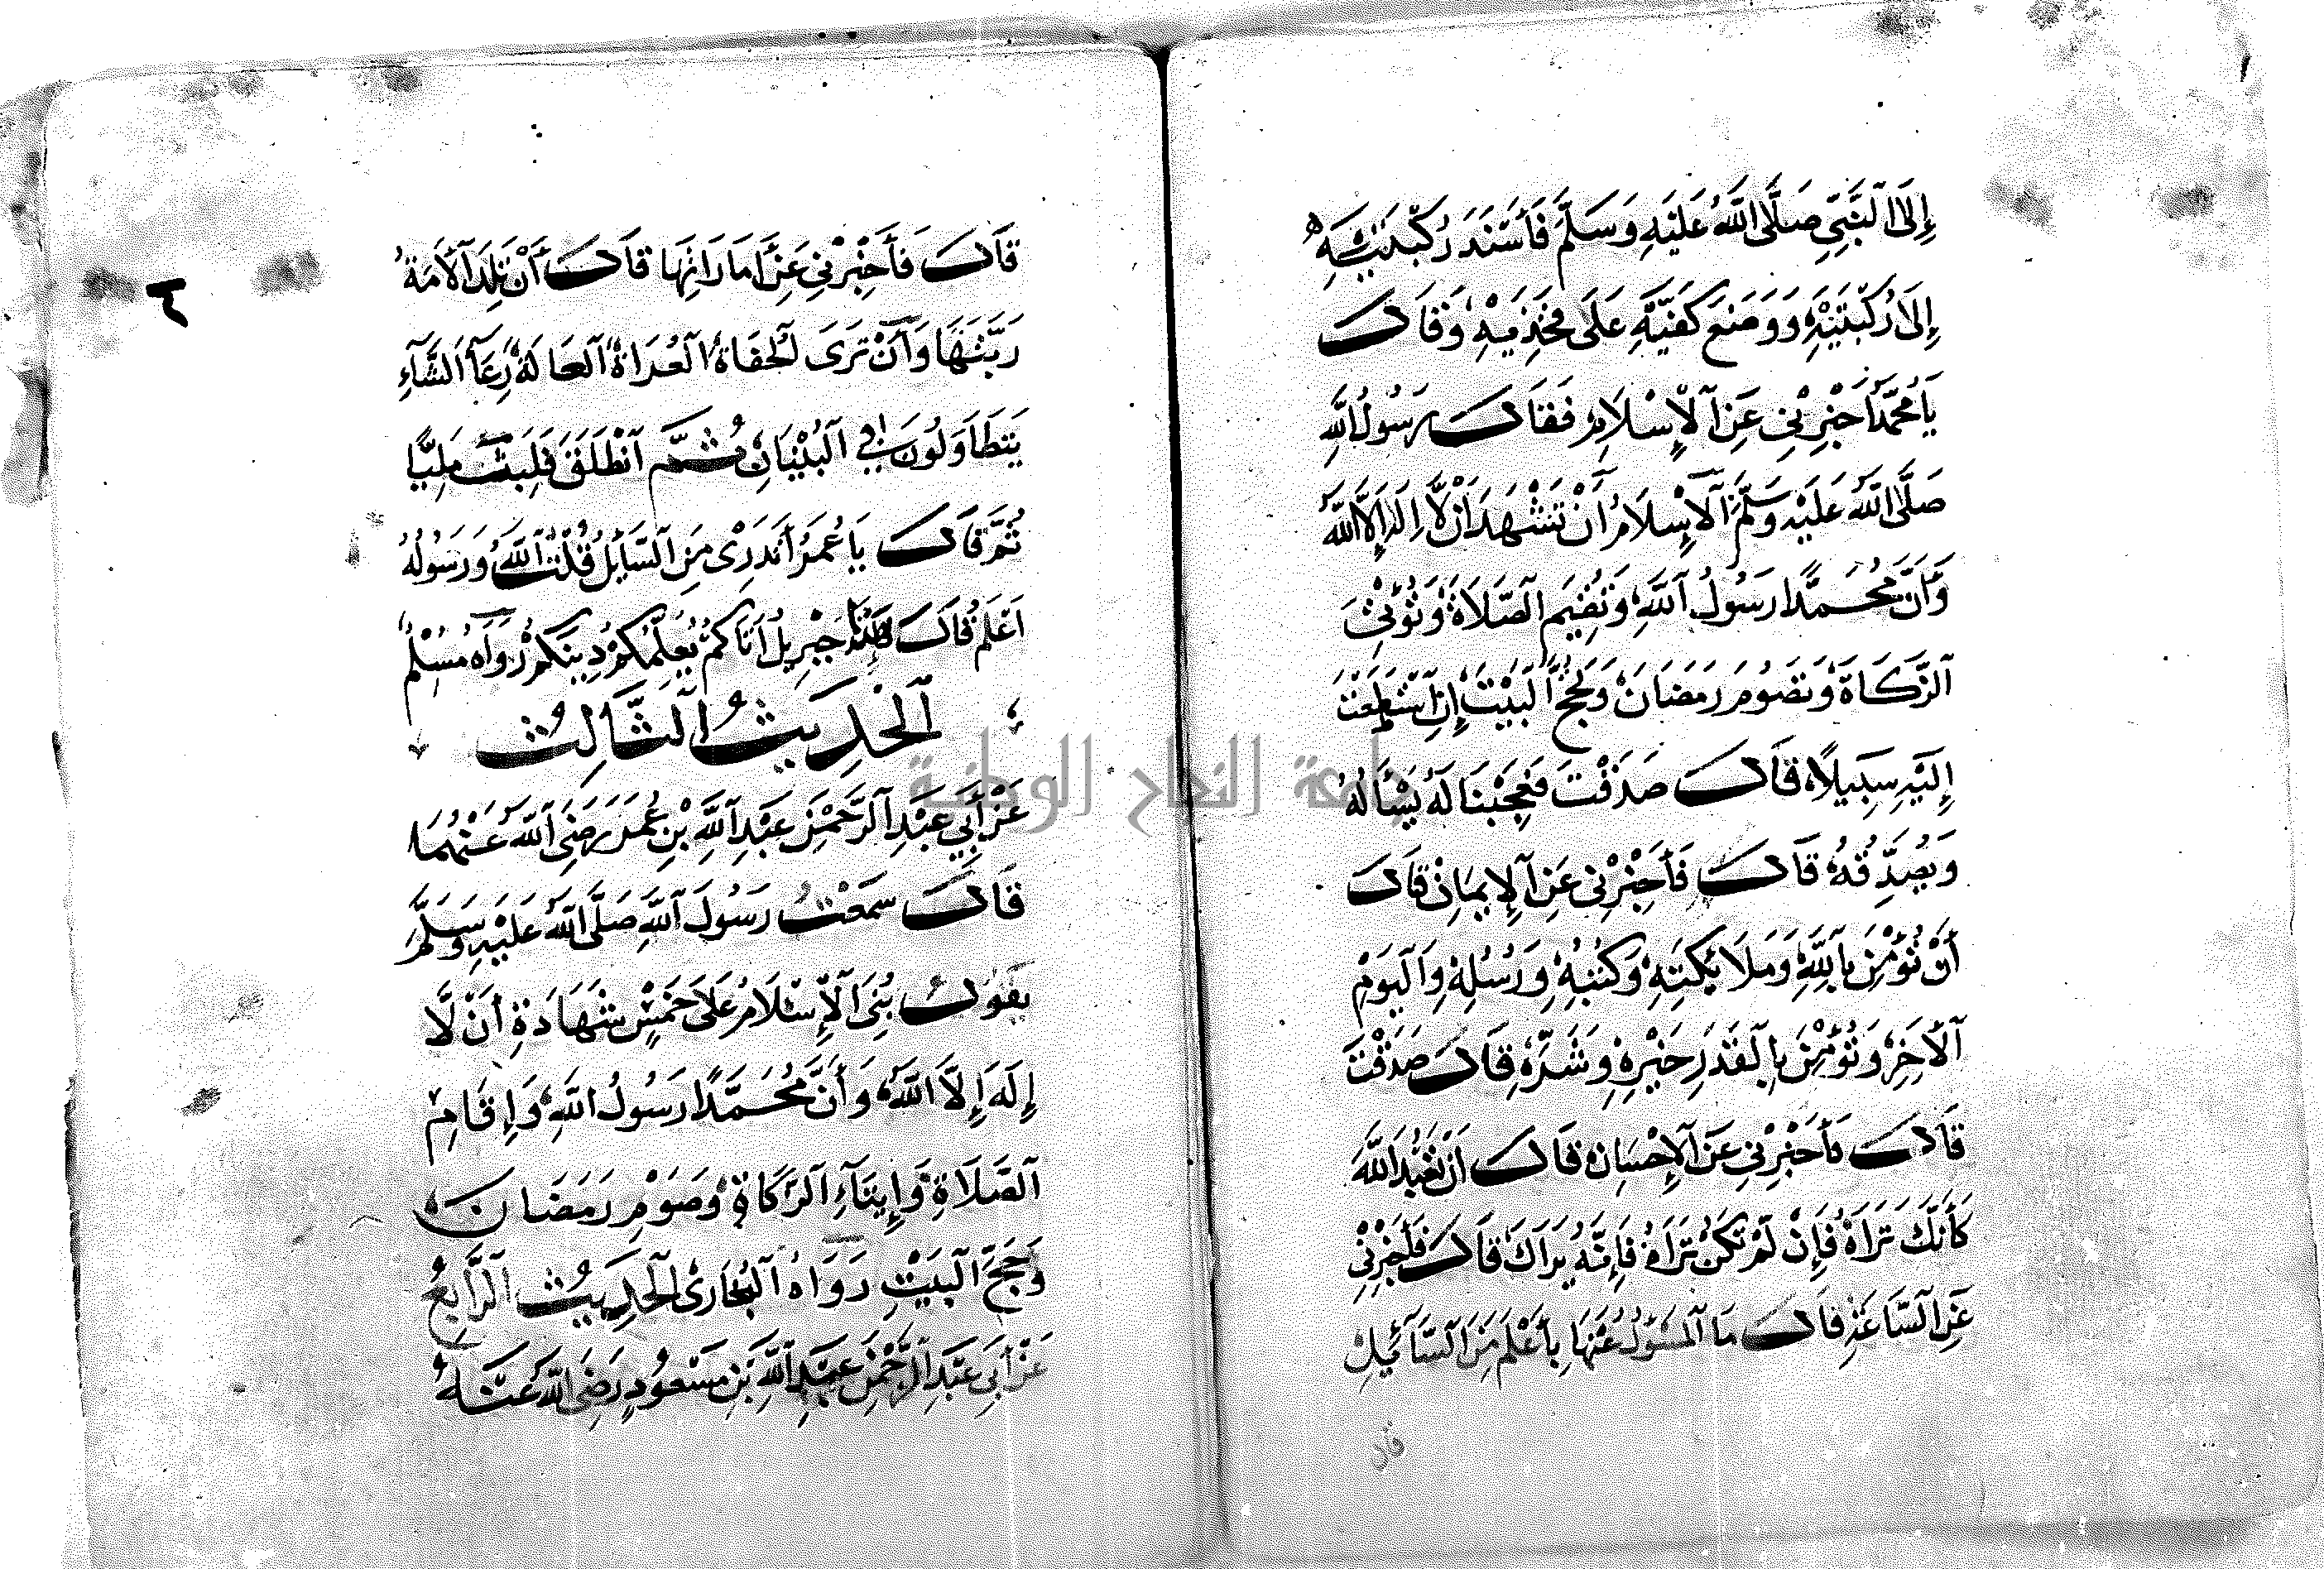 إِلَى النَّبِيِّ صَلَّى اللَّهُ عَلَيْهِ وَسَلَّمَ فَأَسْنَدَ رُكْبَتَيْهِ
إِلَى رُكْبَتَيْهِ وَوَضَعَ كَفَّيْهِ عَلَى فَخِذَيْهِ وَقَالَ
يَا مُحَمَّدُ أَخْبِرْنِي عَنِ الْإِسْلَامِ فَقَالَ رَسُولُ اللَّهِ
صَلَّى اللَّهُ عَلَيْهِ وَسَلَّمَ الْإِسْلَامُ أَنْ تَشْهَدَ أَنْ لَا إِلَهَ إِلَّا اللَّهُ
وَأَنَّ مُحَمَّدًا رَسُولُ اللَّهِ وَتُقِيمَ الصَّلَاةَ وَتُؤْتِيَ
الزَّكَاةَ وَتَصُومَ رَمَضَانَ وَتَحُجَّ الْبَيْتَ إِنِ اسْتَطَعْتَ
إِلَيْهِ سَبِيلًا قَالَ صَدَقْتَ فَعَجِبْنَا لَهُ يَسْأَلُهُ
وَيُصَدِّقُهُ قَالَ فَأَخْبِرْنِي عَنِ الْإِيمَانِ قَالَ
أَنْ تُؤْمِنَ بِاللَّهِ وَمَلَائِكَتِهِ وَكُتُبِهِ وَرُسُلِهِ وَالْيَوْمِ
الْآخِرِ وَتُؤْمِنَ بِالْقَدَرِ خَيْرِهِ وَشَرِّهِ قَالَ صَدَقْتَ
قَالَ فَأَخْبِرْنِي عَنِ الْإِحْسَانِ قَالَ أَنْ تَعْبُدَ اللَّهَ
كَأَنَّكَ تَرَاهُ فَإِنْ لَمْ تَكُنْ تَرَاهُ فَإِنَّهُ يَرَاكَ قَالَ فَأَخْبِرْنِي
عَنِ السَّاعَةِ قَالَ مَا الْمَسْؤُلُ عَنْهَا بِأَعْلَمَ مِنَ السَّائِلِ
قال
٢
قَالَ فَأَخْبِرْنِي عَنْ أَمَارَاتِهَا قَالَ أَنْ تَلِدَ الْأَمَةُ
رَبَّتَهَا وَأَنْ تَرَى الْحُفَاةَ الْعُرَاةَ الْعَالَةَ رِعَآءَ الشَّآءِ
يَتَطَاوَلُونَ فِي الْبُنْيَانِ ثُمَّ انْطَلَقَ فَلَبِثَ مَلِيًّا
ثُمَّ قَالَ يَا عُمَرُ أَتَدْرِي مَنِ السَّائِلُ قُلْتُ اللَّهُ وَرَسُولُهُ
أَعْلَمُ قَالَ جِبْرِيلُ أَتَاكُمْ يُعَلِّمُكُمْ دِينَكُمْ رَوَاهُ مُسْلِمٌ
الْحَدِيثُ الثَّالِثُ
عَنْ أَبِي عَبْدِ الرَّحْمَنِ عَبْدِ اللَّهِ بْنِ عُمَرَ رَضِيَ اللَّهُ عَنْهُمَا
قَالَ سَمِعْتُ رَسُولَ اللَّهِ صَلَّى اللَّهُ عَلَيْهِ وَسَلَّمَ
يَقُولُ بُنِيَ الْإِسْلَامُ عَلَى خَمْسٍ شَهَادَةِ أَنْ لَّا
إِلَهَ إِلَّا اللَّهُ وَأَنَّ مُحَمَّدًا رَسُولُ اللَّهِ وَإِقَامِ
الصَّلَاةِ وَإِيتَآءِ الزَّكَاةِ وَصَوْمِ رَمَضَانَ
وَحَجِّ الْبَيْتِ رَوَاهُ الْبُخَارِيُ الْحَدِيثُ الرَّابِعُ
عَنْ أَبِي عَبْدِ الرَّحْمَنِ عَبْدِ اللَّهِ بْنِ مَسْعُودٍ رَضِيَ اللَّهُ عَنْهُ
جامعة النجاح الوطنية